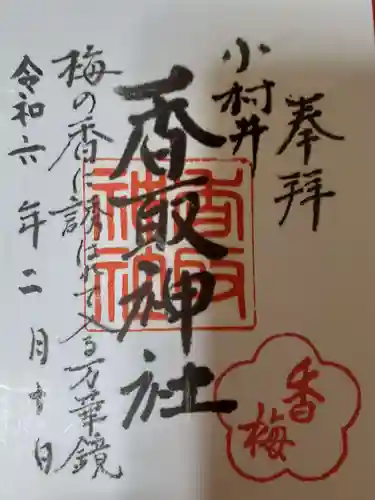 奉拝
小村井
香取神社
香取神社
梅の香に誘はれて入る万華鏡
令和六年二月十日
香梅